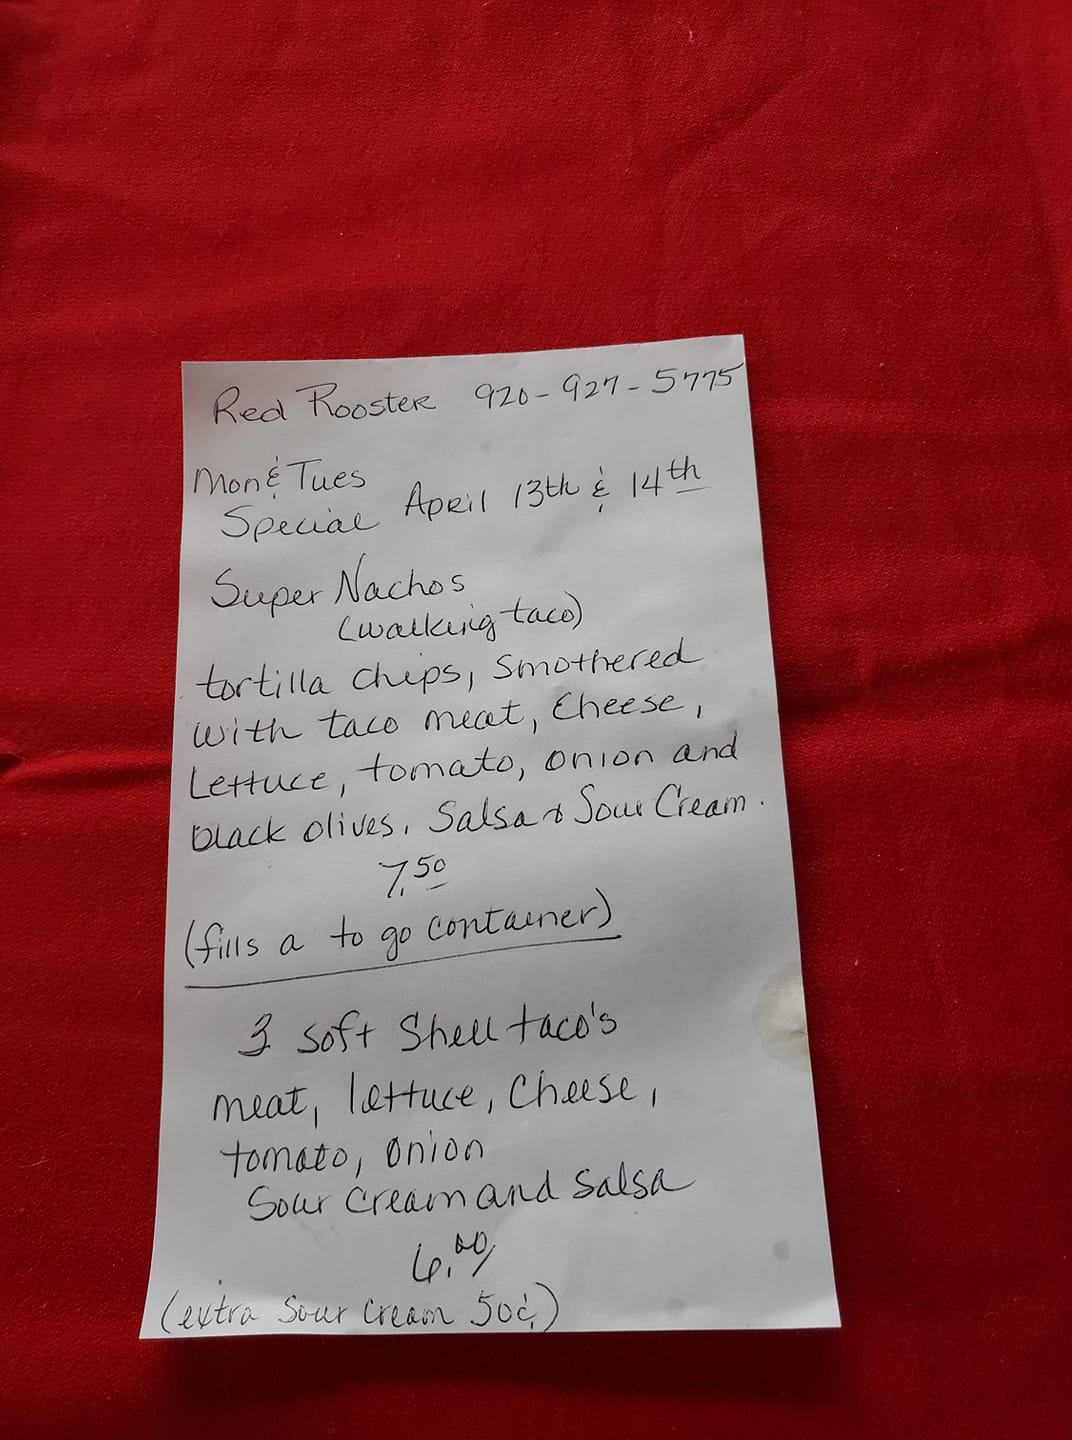 Red Rooster 920-927-5775
Mon & Tues
Special April 13th & 14th
Super Nachos
(walking taco)
tortilla chips, smothered
with taco meat, cheese,
Lettuce, tomato, onion and
black olives, Salsa & Sour Cream.
7.50
(fills a to go container)
3 soft shell taco's
meat, lettuce, cheese,
tomato, onion
Sour cream and salsa
6.00
(extra sour cream 50¢)